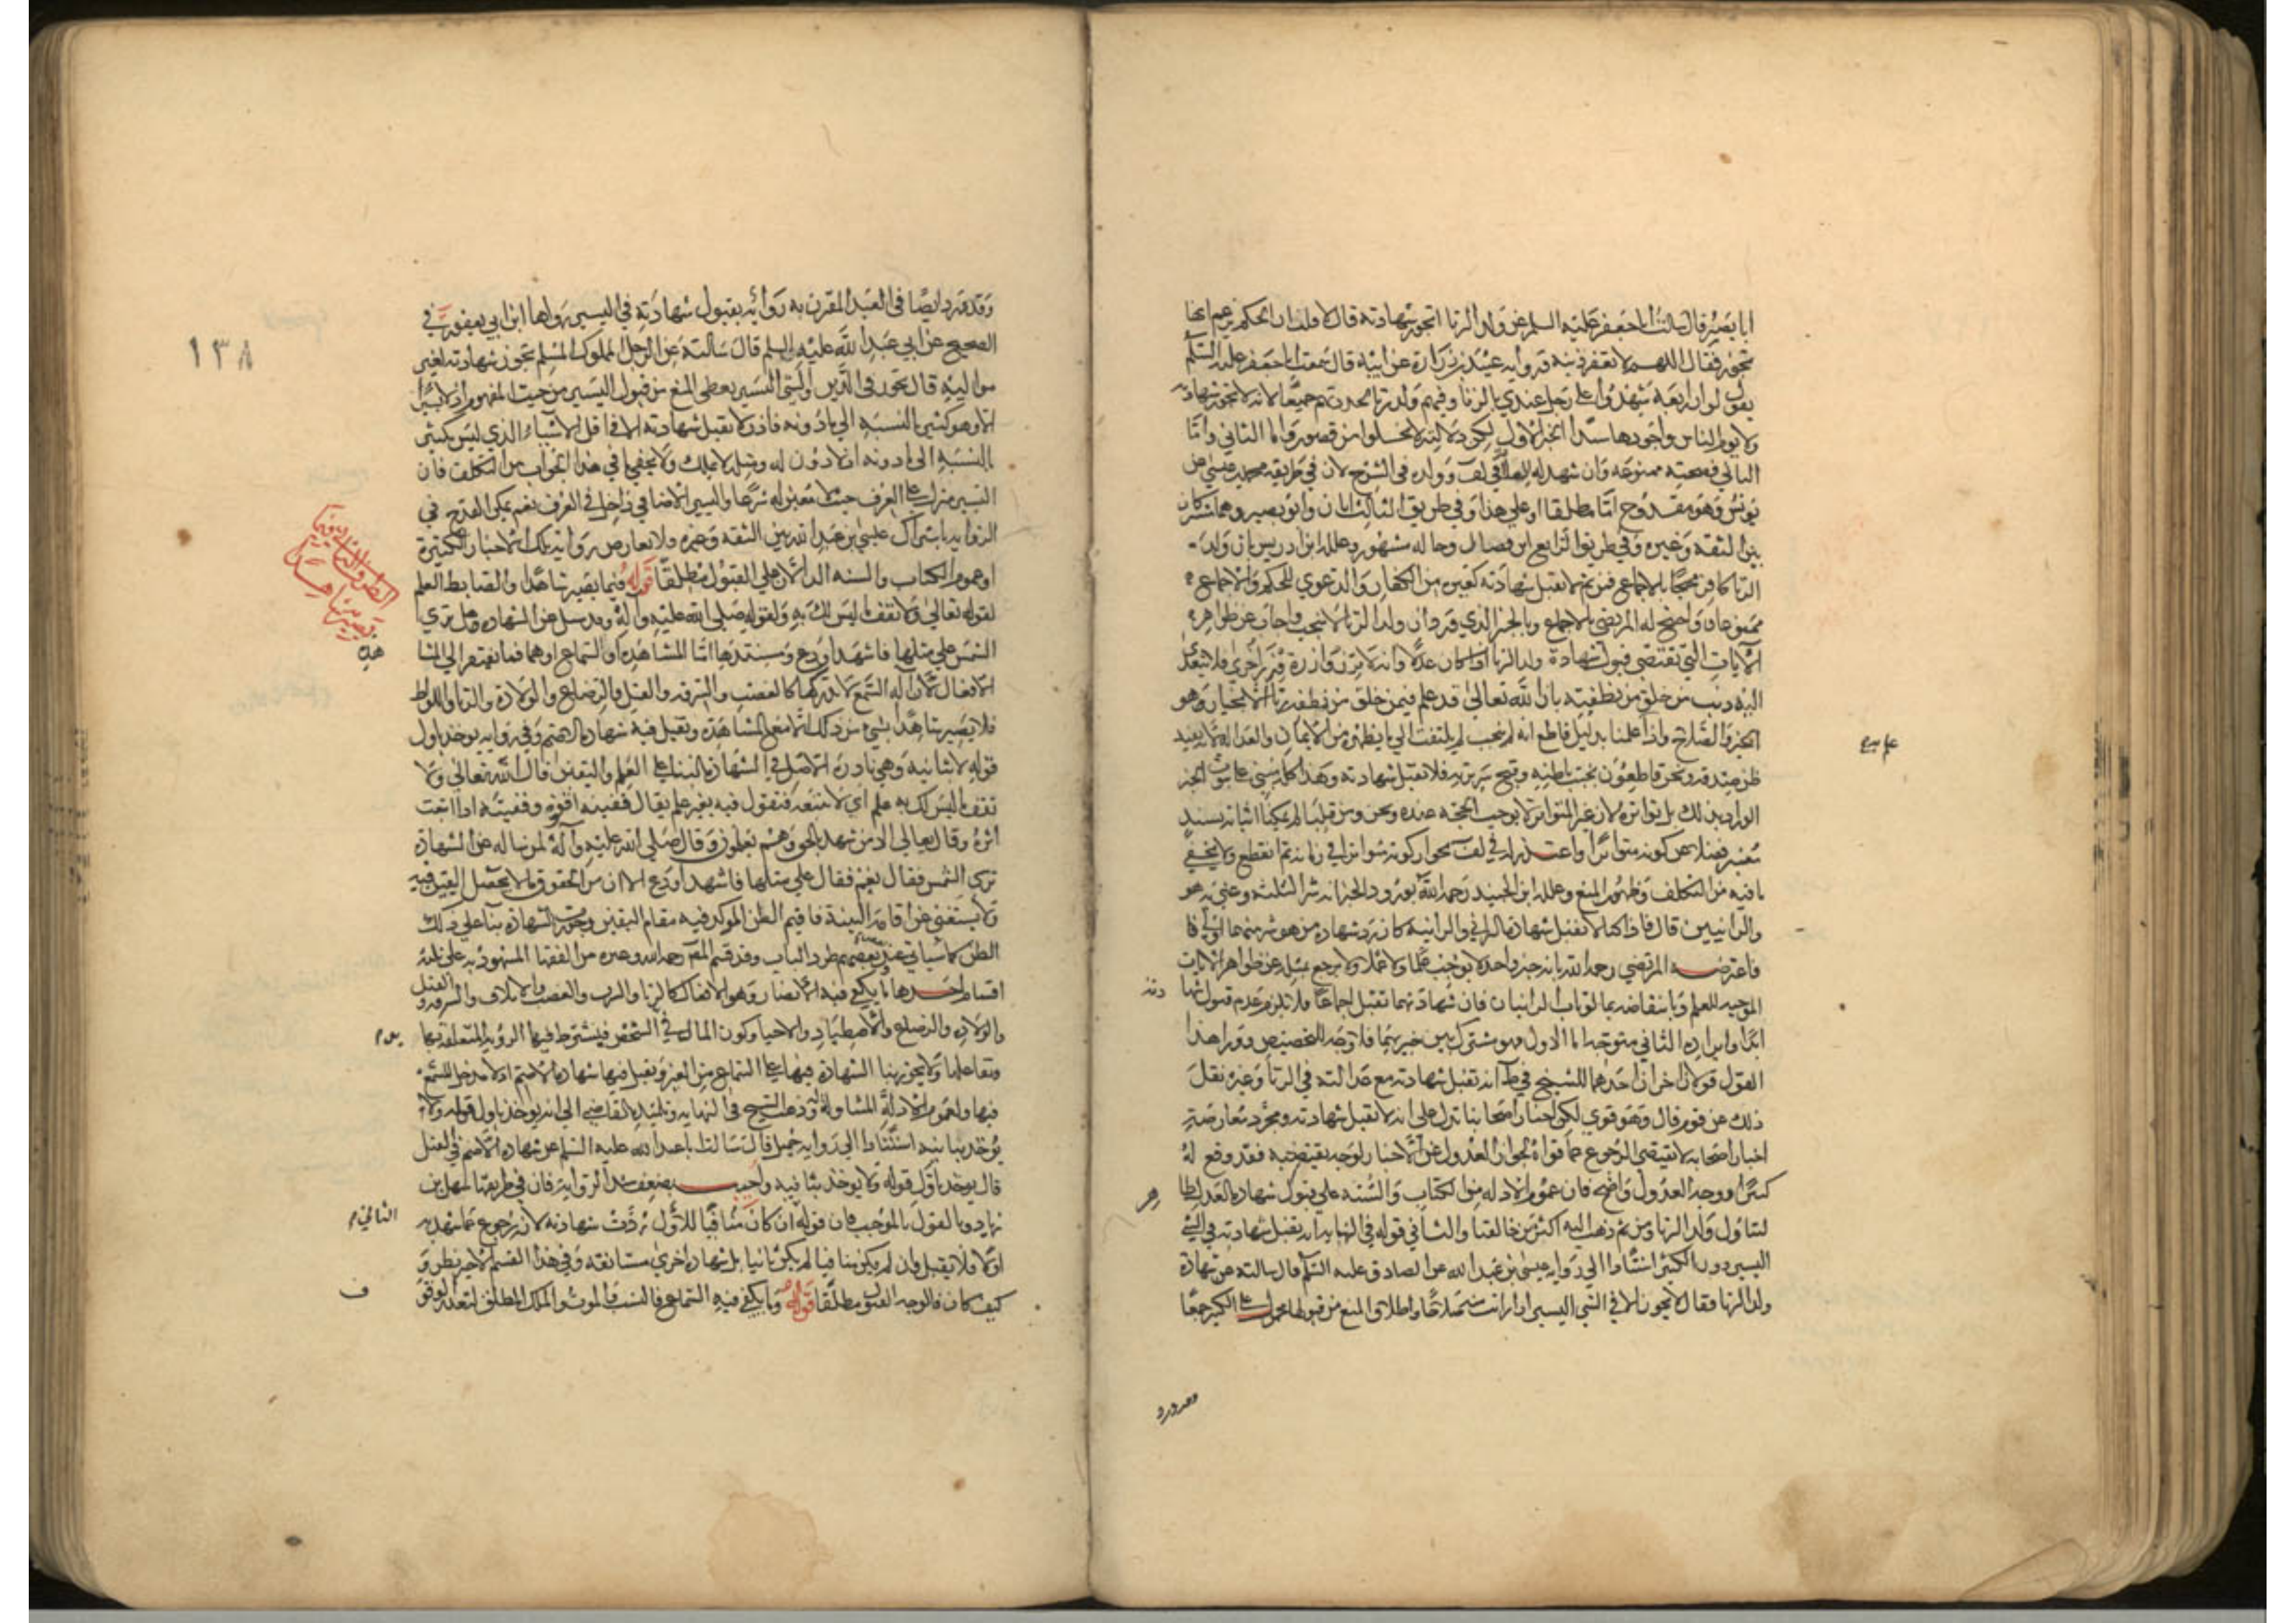 ابا بصير قال سالت ابا جعفر عليه السلم عن ولد الزنا اتجوز شهادته قال لا فقلت ان الحكم يزعم انها
تجوز فقال اللهم لا تغفر ذنبه ورواية عبيد بن زرارة عن ابيه قال سمعت ابا جعفر عليه السلم
يقول لو ان اربعة شهدوا على رجل عندي بالزنا وفيهم ولد زنا لحددتهم جميعا لانه لا تجوز شهادته
ولا يؤم الناس واجودها سندا الخبر الاول لكن دلالته لا تخلوا من قصور واما الثاني واما
الثالث فصحته ممنوعة وان شهد له العلامة في لف وولده في الشرح لان في طريقه محمد بن عيسى عن
يونس وهو مقدوح اما مطلقا او على هذا وفي طريق الثالث ابان وابو بصير وهما مشتركان
بين الثقة وغيره وفي طريق الرابع ابن فضال وحاله مشهور وعلله ابن ادريس بان ولد
الزنا كافر محتجا بالاجماع فمن ثم لا تقبل شهادته كغيره من الكفار والدعوى للحكم والاجماع
ممنوعان واحتج له المرتضى بالاجماع وبالخبر الذي ورد ان ولد الزنا لا ينجب واجاب عن ظواهر
الآيات التي تقتضي قبول شهادة ولد الزنا اذا كان عدلا وانه لا تزر وازرة وزر اخرى فلا يتعدى
اليه ذنب من خلق من نطفته بان الله تعالى قد علم فيمن خلق من نطفة زنا الا يختار هو
الخير والصلاح واذا علمنا بدليل قاطع انه لم ينجب لم يلتفت الى ما يظهر من الايمان والعدالة لانه يفيد
ظن صدقه ونحن قاطعون بخبث باطنه وقبح سريرته فلا تقبل شهادته وهذا كله مبني على ثبوت الخبر
الوارد بذلك بل تواتره لان غير المتواتر لا يوجب الحجة عنده ونحن ومن قبلنا لم يمكنا اثباته بسند
معتبر فضلا عن كونه متواترا واعتذر له في لف بجواز كونه متواترا في زمانه ثم انقطع ولا يخفى
ما فيه من التكلف وظهور المنع وعلله ابن الجنيد رحمه الله بورود الخبر انه شر الثلثة وعني به هو
والزانيين قال فاذا كنا لا نقبل شهادة الزاني والزانية كان رد شهادة من هو شر منهما اولى
فاعترضه المرتضى رحمه الله بانه خبر واحد لا يوجب علما ولا عملا ولا يرجع بمثله عن ظواهر الآيات
الموجبة للعلم وبانتقاضه بما لو تاب الزانيان فان شهادتهما تقبل اجماعا ولا يلزم عدم قبولها
ابدا وايراده الثاني متوجه اما الاول فهو مشترك بين خبريهما فلا وجه للتخصيص ووراء هذا
القول قولان اخران احدهما للشيخ في ط انه تقبل شهادته مع عدالته في الزنا وغيره نقل
ذلك عن قوم قال وهو قوي لكن اخبار اصحابنا تدل على انه لا تقبل شهادته ومجرد معارضة
اخبار اصحابه لا يقتضي الرجوع عما قواه لجواز العدول عن الاخبار لوجه يقتضيه فقد وقع له
كثيرا ووجه العدول واضح فان عموم الادلة من الكتاب والسنة على قبول شهادة العدل
يتناول ولد الزنا ومن ثم ذهب اليه اكثر من خالفنا والثاني قوله في النهاية انه تقبل شهادته في الشئ
اليسير دون الكثير استنادا الى رواية عيسى بن عبد الله عن الصادق عليه السلم قال سالته عن شهادة
ولد الزنا فقال لا تجوز الا في الشئ اليسير اذا رايت منه صلاحا واطلاق المنع من قبولها محمول على الكثير جمعا
وقد ورد
وقد ورد ايضا في العبد المقرن به رواية بقبول شهادته في اليسير رواها ابن ابي يعفور في
الصحيح عن ابي عبد الله عليه السلم قال سالته عن الرجل المملوك المسلم تجوز شهادته لغير
مواليه قال تجوز في الدين والشئ اليسير يعطي المنع من قبول اليسير من حيث المفهوم اذ لا يسير
الا وهو كثير بالنسبة الى ما دونه فاذن لا تقبل شهادته الا في اقل الاشياء الذي ليس بكثير
بالنسبة الى ما دونه اذ لا دون له ومثله لا يملك ولا يخفى ما في هذا الجواب من التكلف فان
اليسير منزل على العرف حيث لا معين له شرعا واليسير الاضافي داخل في العرف نعم يمكن القدح في
الرواية باشتراك عيسى بن عبد الله بين الثقة وغيره ولا تعارض روايته تلك الاخبار الكثيرة
او عموم الكتاب والسنة الدالان على القبول مطلقا قوله فيما يصير شاهدا والضابط العلم
لقوله تعالى ولا تقف ما ليس لك به ولقوله صلى الله عليه وآله وقد سئل عن الشهادة هل ترى
الشمس على مثلها فاشهد او دع ومستندها اما المشاهدة او السماع او هما فما يفتقر الى المشا
هدة
الافعال لان آلة السمع لا تدركها كالغصب والسرقة والقتل والرضاع والولادة والزنا واللواط
فلا يصير شاهدا بشئ من ذلك الا مع المشاهدة وتقبل فيه شهادة الاصم وفي رواية يؤخذ باول
قوله لا بثانيه وهي نادرة الاصل في الشهادة البناء على العلم واليقين قال الله تعالى ولا
تقف ما ليس لك به علم اي لا تتبعه فتقول فيه بغير علم يقال قفيته اقفوه وقفيته اذا اتبعت
اثره وقال تعالى الا من شهد بالحق وهم يعلمون وقال صلى الله عليه وآله لمن ساله عن الشهادة
ترى الشمس فقال نعم فقال على مثلها فاشهد او دع الا ان من الحقوق ما لا يحصل اليقين فيه
ولا يستغني عن اقامة البينة فاقيم الظن المؤكد فيه مقام اليقين وجوزت الشهادة بناء على ذلك
الظن كما سياتي عند بعضهم طرد الباب وقد قسم المص رحمه الله وغيره من الفقها المشهود به على ثلثة
اقسام احدها ما يكفي فيه الابصار وهو الافعال كالزنا والشرب والغصب والاتلاف والسرقة والقتل
والولادة والرضاع والاصطياد والاحيا وكون المال في الشخص فيشترط فيها الرؤية المتعلقة بها
وبفاعلها ولا يجوز بنا الشهادة فيها على السماع من الغير وتقبل فيها شهادة الاصم اذ لا مدخل للسمع
فيها ولعموم الادلة المتناولة له وذهب الشيخ في النهاية وتلميذه القاضي الى انه يؤخذ باول قوله ولا
يؤخذ بثانيه استنادا الى رواية جميل قال سالت ابا عبد الله عليه السلم عن شهادة الاصم في القتل
قال يؤخذ باول قوله ولا يؤخذ بثانيه واجيب بضعف سند الرواية فان في طريقها سهل بن
زياد وبالقول بالموجب فان قوله ان كان منافيا للاول ردت شهادته لانه رجوع عما شهد به
اولا فلا يقبل وان لم يكن منافيا لم يكن ثانيا بل شهادة اخرى مستانفة وفي هذا القسم الاخير نظر و
كيف كان فالوجه القبول مطلقا قوله وما يكفي فيه السماع فالنسب والموت والملك المطلق لتعذر الوقوف
١٣٨
الطرف الثاني فيما يصير به شاهدا
الثاني